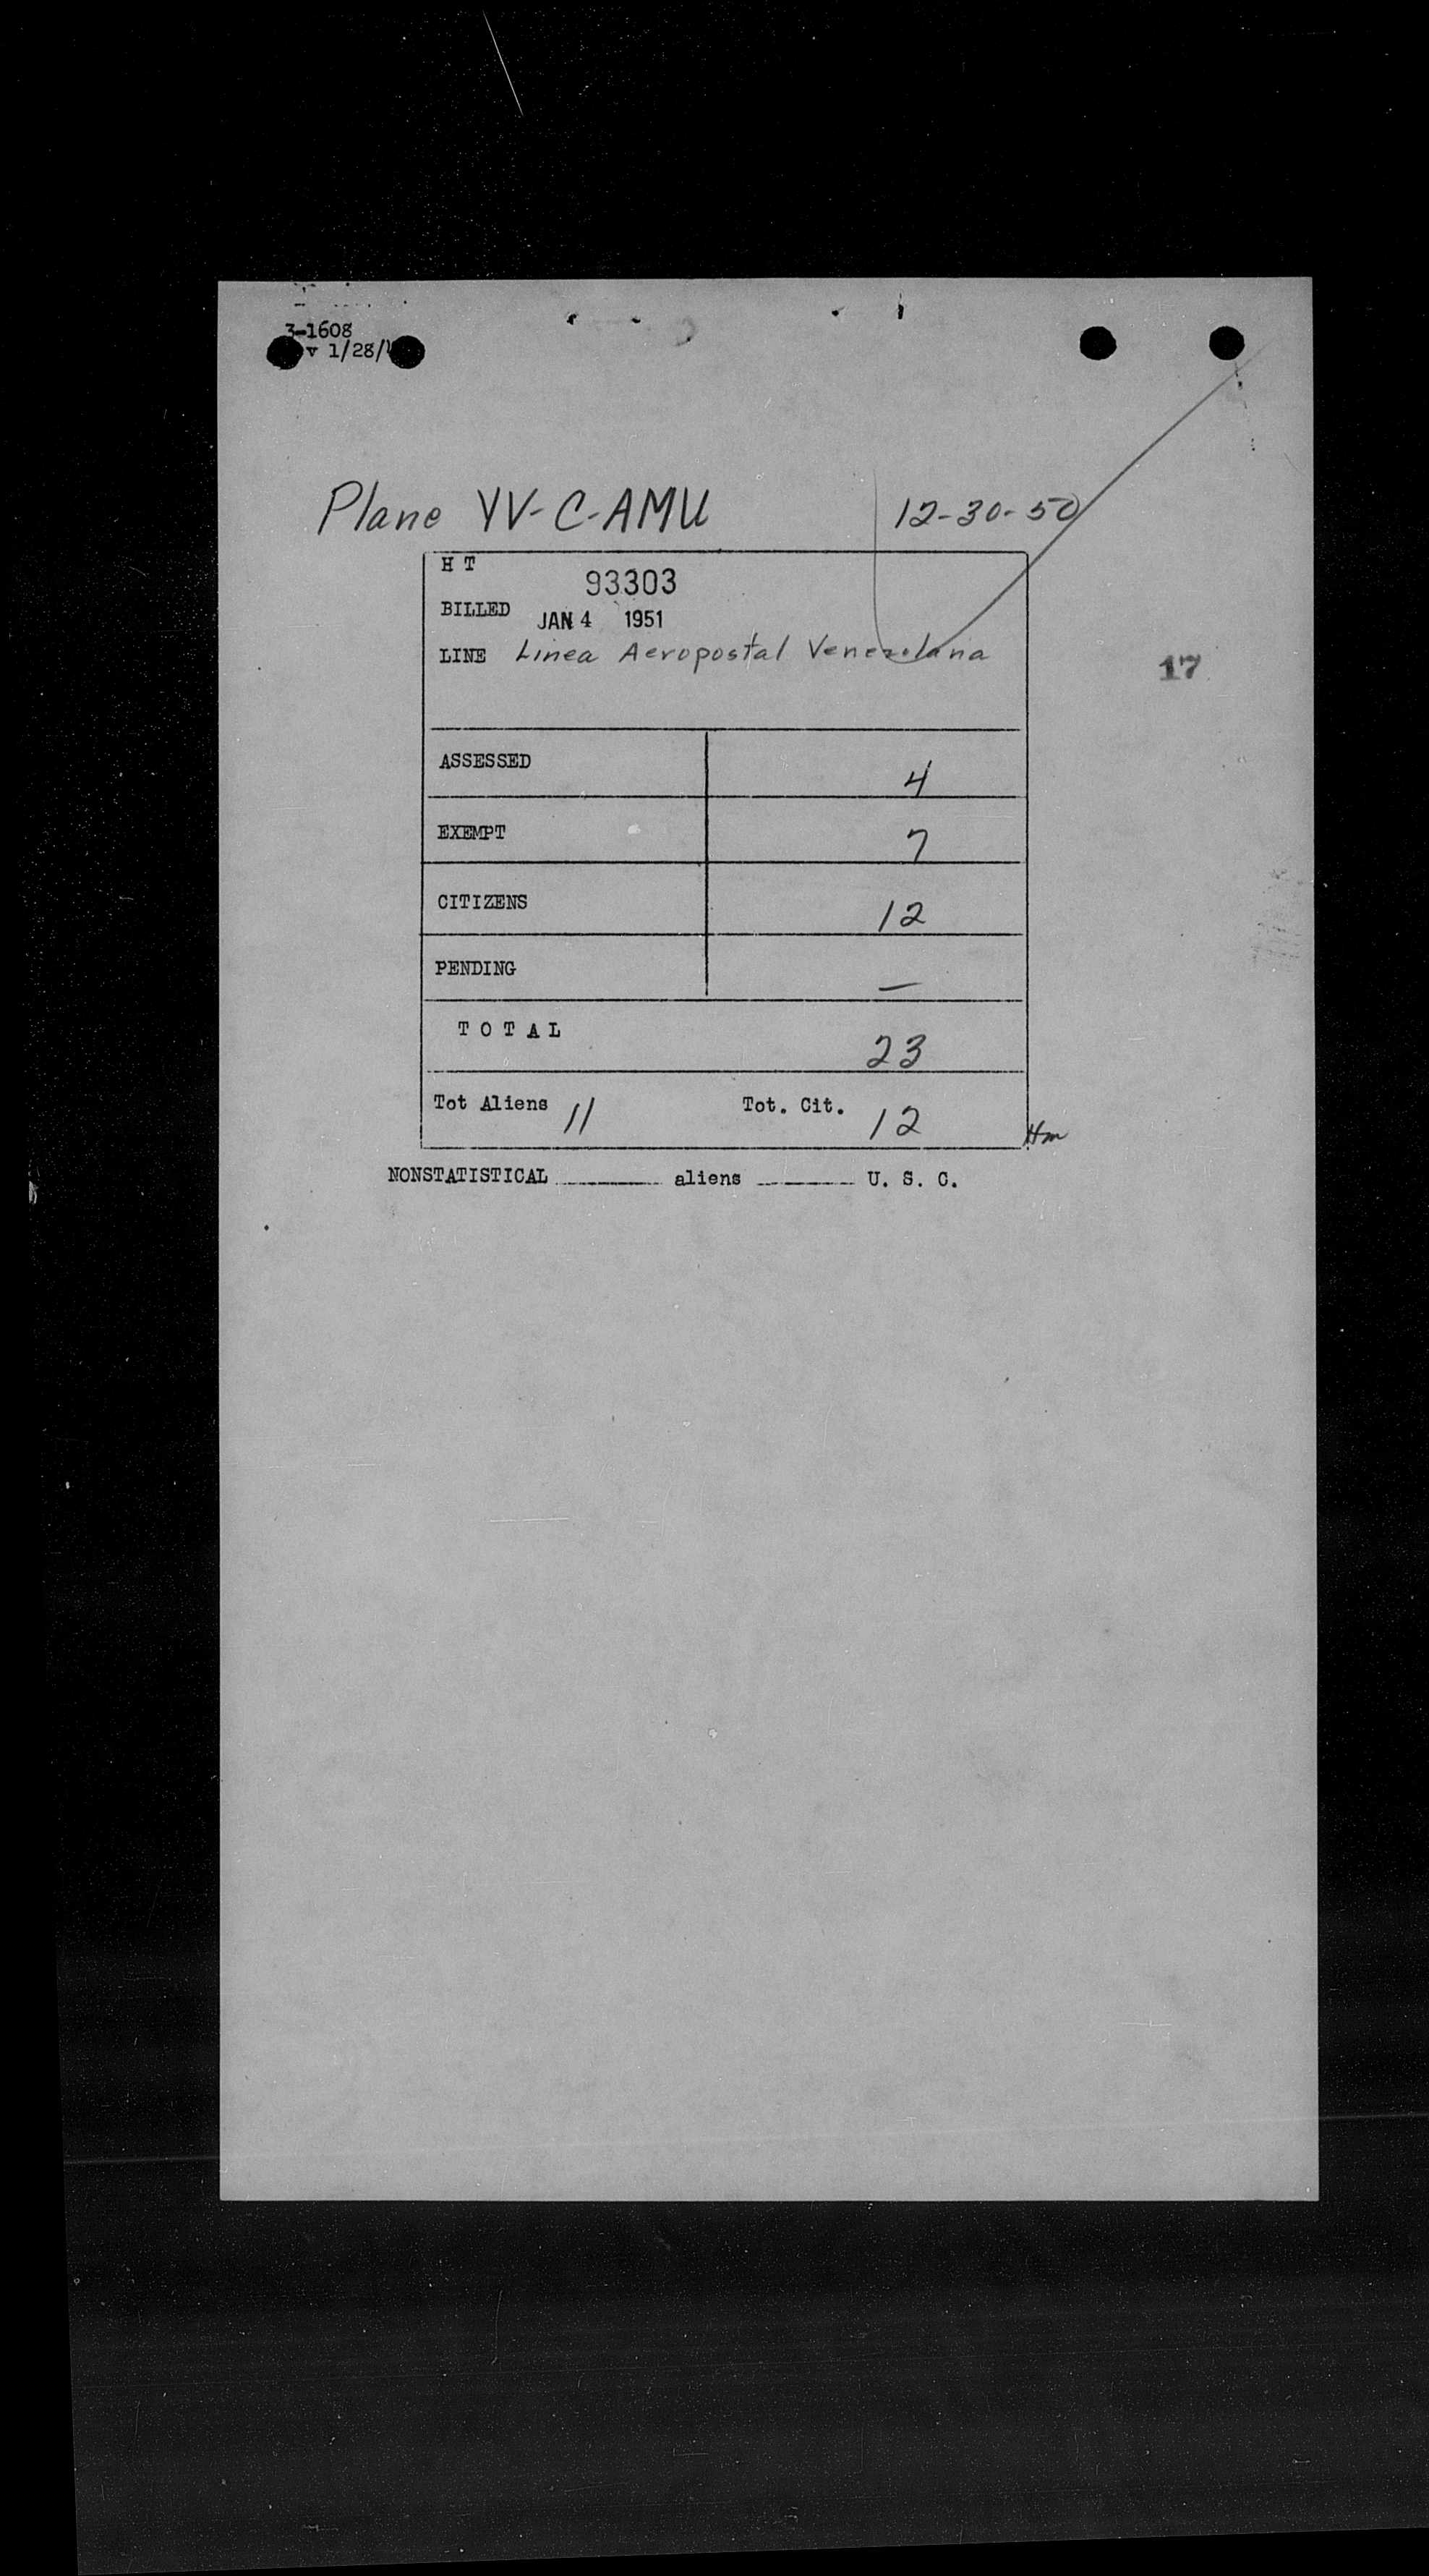 3-1608
v 1/28/
Plane YV-C-AMU 12-30-50
H T 93303
BILLED JAN 4 1951
LINE Linea Aeropostal Venezolana
17
ASSESSED 4
EXEMPT 7
CITIZENS 12
PENDING —
T O T A L 23
Tot Aliens 11 Tot. Cit. 12
Hm
NONSTATISTICAL ________ aliens ________ U. S. C.